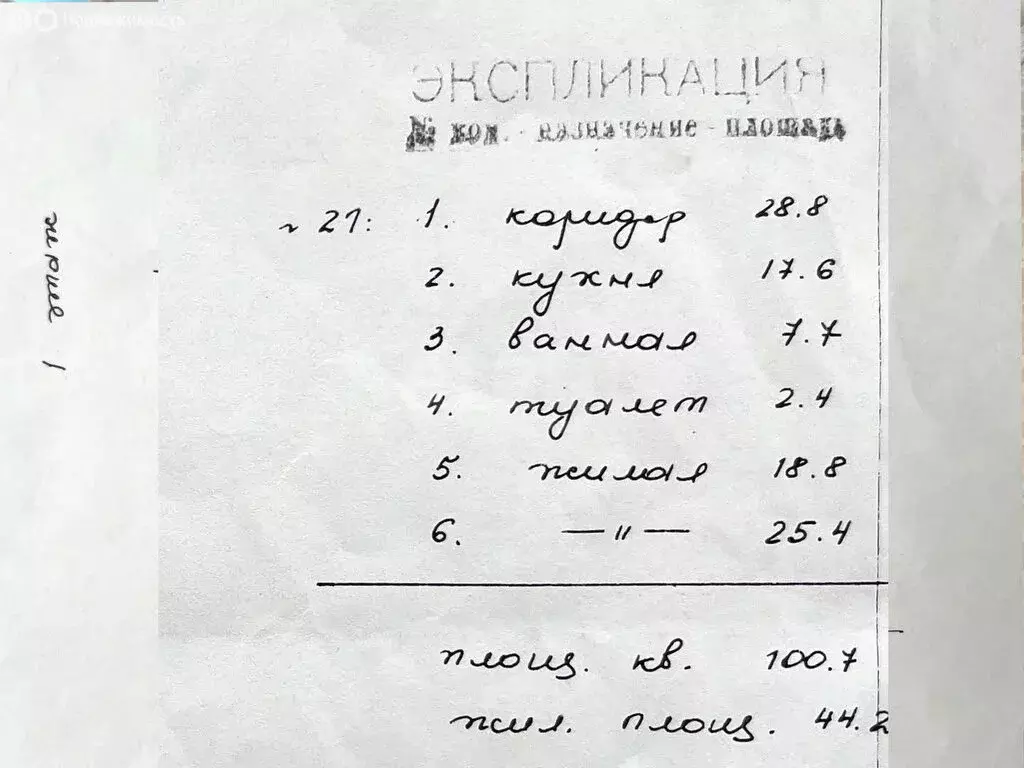 ЭКСПЛИКАЦИЯ
№ ком. - назначение - площадь
21: 1. коридор 28.8
2. кухня 17.6
3. ванная 7.7
4. туалет 2.4
5. жилая 18.8
6. —〃— 25.4
площ. кв. 100.7
жил. площ. 44.2